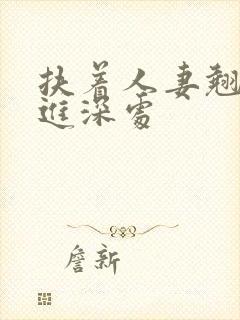 扶着人妻翘
进深处
詹新